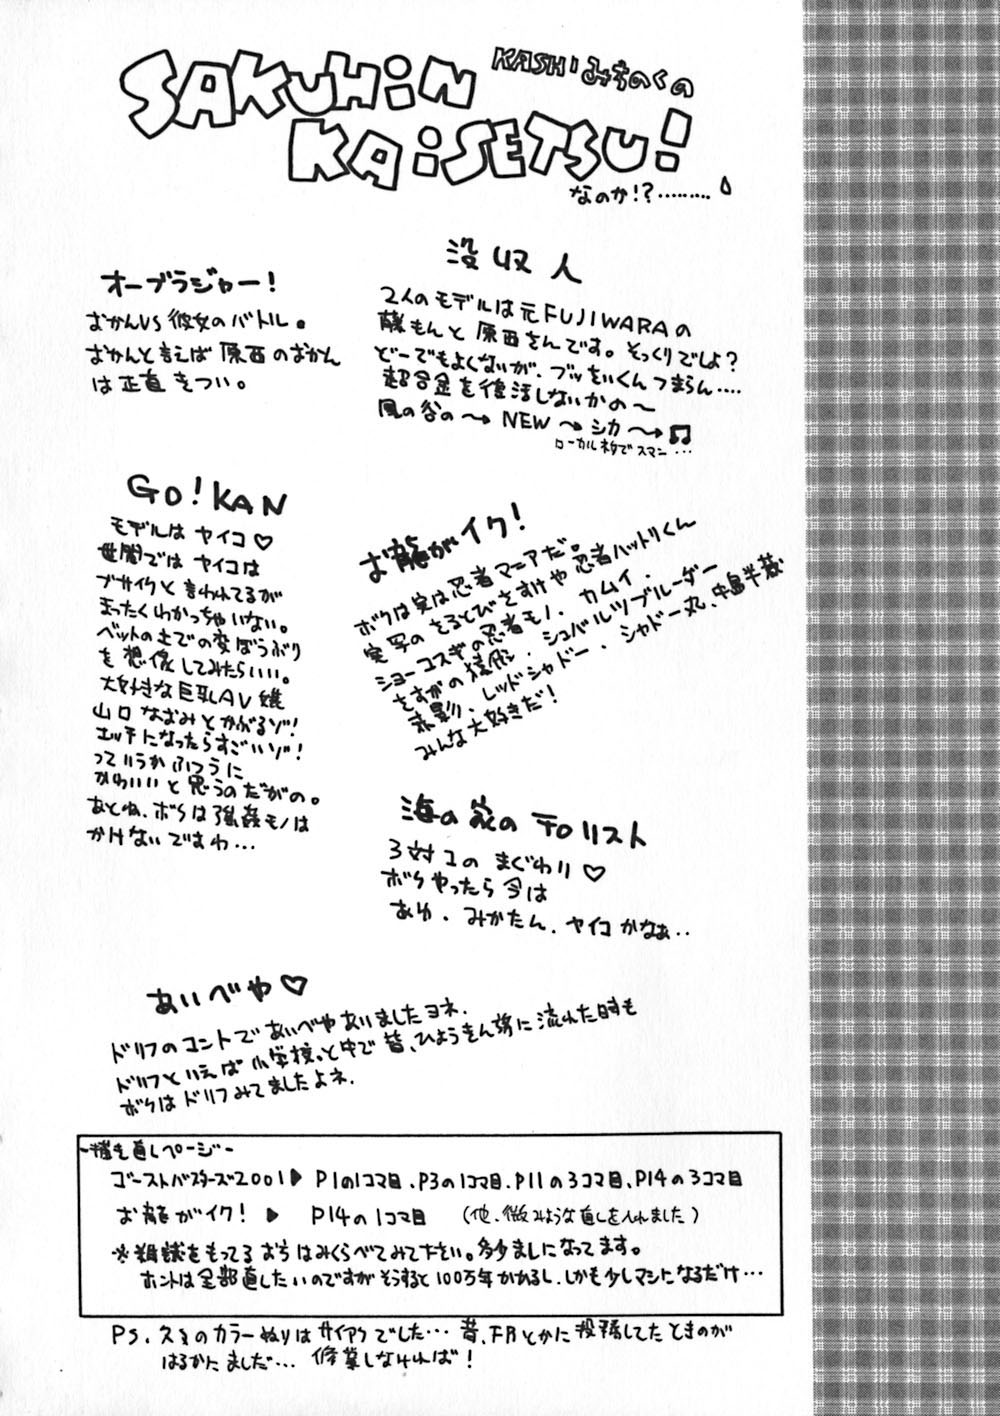 SAKUHiN KASHIみちのくの
KAiSETSU!
なのか!?………
没収人
2人のモデルは元FUJIWARAの
藤もんと原西さんです。そっくりでしょ?
どーでもよくないが、ブッちぃくんつまらん….
超合金を復活しないかの〜
風の谷の〜→ NEW 〜→ シカ 〜→ ♫
ローカルネタでスマン…
オーブラジャー!
おかんVS彼女のバトル。
おかんと言えば原西のおかん
は正直きつい。
GO!KAN
モデルはヤイコ♡
世間ではヤイコは
ブサイクと言われてるが
まったくわかっちゃいない。
ベットの上での変ぼうぶり
を想像してみたらいい。
大好きな巨乳AV嬢
山口なおみとかがるゾ!
エッチになったらすごいゾ!
っていうかふつうに
かわいいと思うのだがの。
あとね、ボクは強姦モノは
かけないですわ…
お龍がイク!
ボクは実は忍者マニアだ。
実写のさるとびさすけや忍者ハットリくん
ショーコスギの忍者モノ、カムイ、
さすがの猿飛、シュバルツブルーダー
赤影、レッドシャドー、シャドー丸、中島半蔵
みんな大好きだ!
海の家のテロリスト
3対1のまぐわり♡
ボクやったら今は
あゆ、みかたん、ヤイコかなぁ..
あいべや♡
ドリフのコントであいべやありましたヨネ.
ドリフといえば小学校っと中で昔、ひょうきん族に流れた時も
ボクはドリフみてましたよネ.
-描き直しページ-
ゴーストバスターズ2001▶ P1の1コマ目、P3の1コマ目、P11の3コマ目、P14の3コマ目
お龍がイク! ▶ P14の1コマ目 (他、微みような直しを入れました)
※雑誌をもってるおちはみくらべてみて下さい。多少ましになってます。
ホントは全部直したいのですがそうすると100万年かかるし、しかも少しマシになるだけ…
PS、久々のカラーぬりはサイアクでした… 昔、FRとかに投稿してたときのが
はるかにましだ… 修業しなければ!